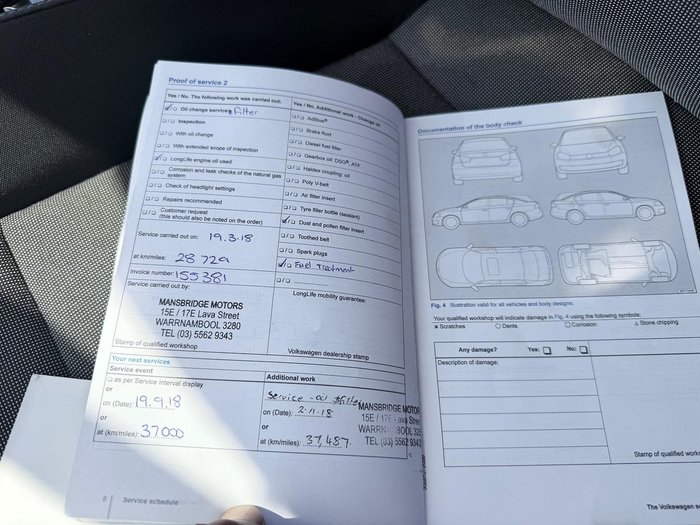 Proof of service 2
Yes / No. The following work was carried out:
Oil change service & Filter
Inspection
With oil change
With extended scope of inspection
LongLife engine oil used
Corrosion and leak checks of the natural gas
system
Check of headlight settings
Repairs recommended
Customer request
(this should also be noted on the order)
Service carried out on: 19.3.18
at km/miles: 28 729
Invoice number: 155381
Service carried out by:
MANSBRIDGE MOTORS
15E / 17E Lava Street
WARRNAMBOOL 3280
TEL (03) 5562 9343
Stamp of qualified workshop
Yes / No. Additional work - Change of:
AdBlue®
Brake fluid
Diesel fuel filter
Gearbox oil: DSG®, ATF
Haldex coupling: oil
Poly V-belt
Air filter insert
Tyre filler bottle (sealant)
Dust and pollen filter insert
Toothed belt
Spark plugs
Fuel Treatment
LongLife mobility guarantee:
Volkswagen dealership stamp
Your next services
Service event
as per Service interval display
or
on (Date): 19.9.18
or
at (km/miles): 37000
Additional work
Service - oil & filter
on (Date): 2.11.18
or
at (km/miles): 37,487
MANSBRIDGE MOTOR
15E / 17E Lava Stree
WARRN BOOL 328
TEL (03) 5562 9343
8 Service schedule
Documentation of the body check
Fig. 4 Illustration valid for all vehicles and body designs.
Your qualified workshop will indicate damage in Fig. 4 using the following symbols:
x Scratches ○ Dents □ Corrosion △ Stone chipping
Any damage? Yes: No:
Description of damage:
Stamp of qualified works
The Volkswagen se